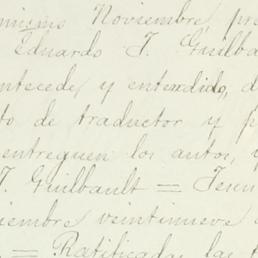 Noviembre, pre
Eduardo J. Guilba
ntecede, y entendido, d
to de traductor y p
entreguen los autos, y
J. Guilbault = Jesu
iembre veintinueve d
= Ratificadas las